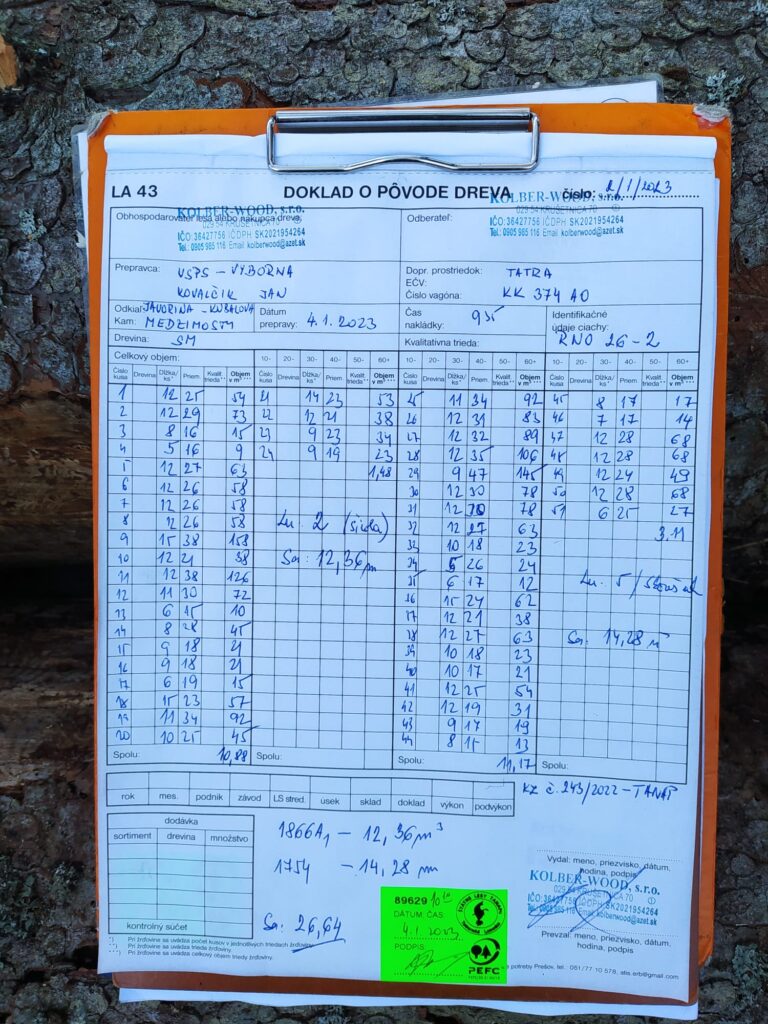 LA 43 DOKLAD O PÔVODE DREVA číslo: 2/1/2023
Obhospodarovateľ lesa alebo nákupca dreva
KOLBER-WOOD, s.r.o.
029 54 KRUŠETNICA 70
IČO:36427756 IČDPH SK2021954264
Tel.: 0905 985 116 Email kolberwood@azet.sk
Odberateľ:
KOLBER-WOOD, s.r.o.
029 54 KRUŠETNICA 70
IČO:36427756 IČDPH SK2021954264
Tel.: 0905 985 116 Email kolberwood@azet.sk
Prepravca: VSPS - VÝBORNA
KOVALČIK JAN
Dopr. prostriedok: TATRA
EČV:
Číslo vagóna: KK 374 AO
Odkiaľ: JAVORINA -
Kam: MEDZIMOSTY
Dátum prepravy: 4.1.2023
Čas nakládky: 9
Identifikačné údaje ciachy: RNO 26-2
Drevina: SM
Kvalitatívna trieda:
Celkový objem: 10- 20- 30- 40- 50- 60+ 10- 20- 30- 40- 50- 60+ 10- 20- 30- 40- 50- 60+
Číslo kusa Drevina Dĺžka/ks* Priem. Kvalit. trieda** Objem v m³***
1 12 25 54
2 12 29 73
3 8 16 15
4 5 16 9
5 12 27 63
6 12 26 58
7 12 26 58
8 12 26 58
9 15 38 158
10 12 21 38
11 12 38 126
12 11 30 72
13 6 15 10
14 8 28 45
15 9 18 21
16 9 18 21
17 6 19 15
18 15 23 57
19 11 34 92
20 10 25 45
Spolu: 10,88
Číslo kusa Drevina Dĺžka/ks* Priem. Kvalit. trieda** Objem v m³***
21 14 23 53
22 12 21 38
23 9 23 34
24 9 19 23
1,48
2
12,36 m
Spolu:
Číslo kusa Drevina Dĺžka/ks* Priem. Kvalit. trieda** Objem v m³***
25 11 34 92
26 12 31 83
27 12 32 89
28 12 35 106
29 9 47 145
30 12 30 78
31 12 30 78
32 12 27 63
33 10 18 23
34 5 26 24
35 6 17 12
36 15 24 62
37 12 21 38
38 12 27 63
39 10 18 23
40 10 17 21
41 12 25 54
42 12 19 31
43 9 17 19
44 8 15 13
Spolu: 11,17
Číslo kusa Drevina Dĺžka/ks* Priem. Kvalit. trieda** Objem v m³***
45 8 17 17
46 7 17 14
47 12 28 68
48 12 28 68
49 12 24 49
50 12 28 68
51 6 25 27
3,11
5
14,28 m
Spolu:
rok mes. podnik závod LS stred. úsek sklad doklad výkon podvýkon
KZ č. 243/2022 - TANAP
dodávka
sortiment drevina množstvo
kontrolný súčet
1866A1 - 12,36 m³
1754 - 14,28 m
26,64
Vydal: meno, priezvisko, dátum, hodina, podpis
KOLBER-WOOD, s.r.o.
029 54 KRUŠETNICA 70
IČO:36427756 IČDPH SK2021954264
Tel.: 0905 985 116 Email kolberwood@azet.sk
Prevzal: meno, priezvisko, dátum, hodina, podpis
89629
DÁTUM, ČAS
4.1.2023
PODPIS
ŠTÁTNE LESY TANAPU
PEFC
* Pri žrďovine sa uvádza počet kusov v jednotlivých triedach žrďoviny
** Pri žrďovine sa uvádza trieda žrďoviny.
*** Pri žrďovine sa uvádza celkový objem triedy žrďoviny.
potreby Prešov, tel.: 051/77 10 578, atis.erb@gmail.com